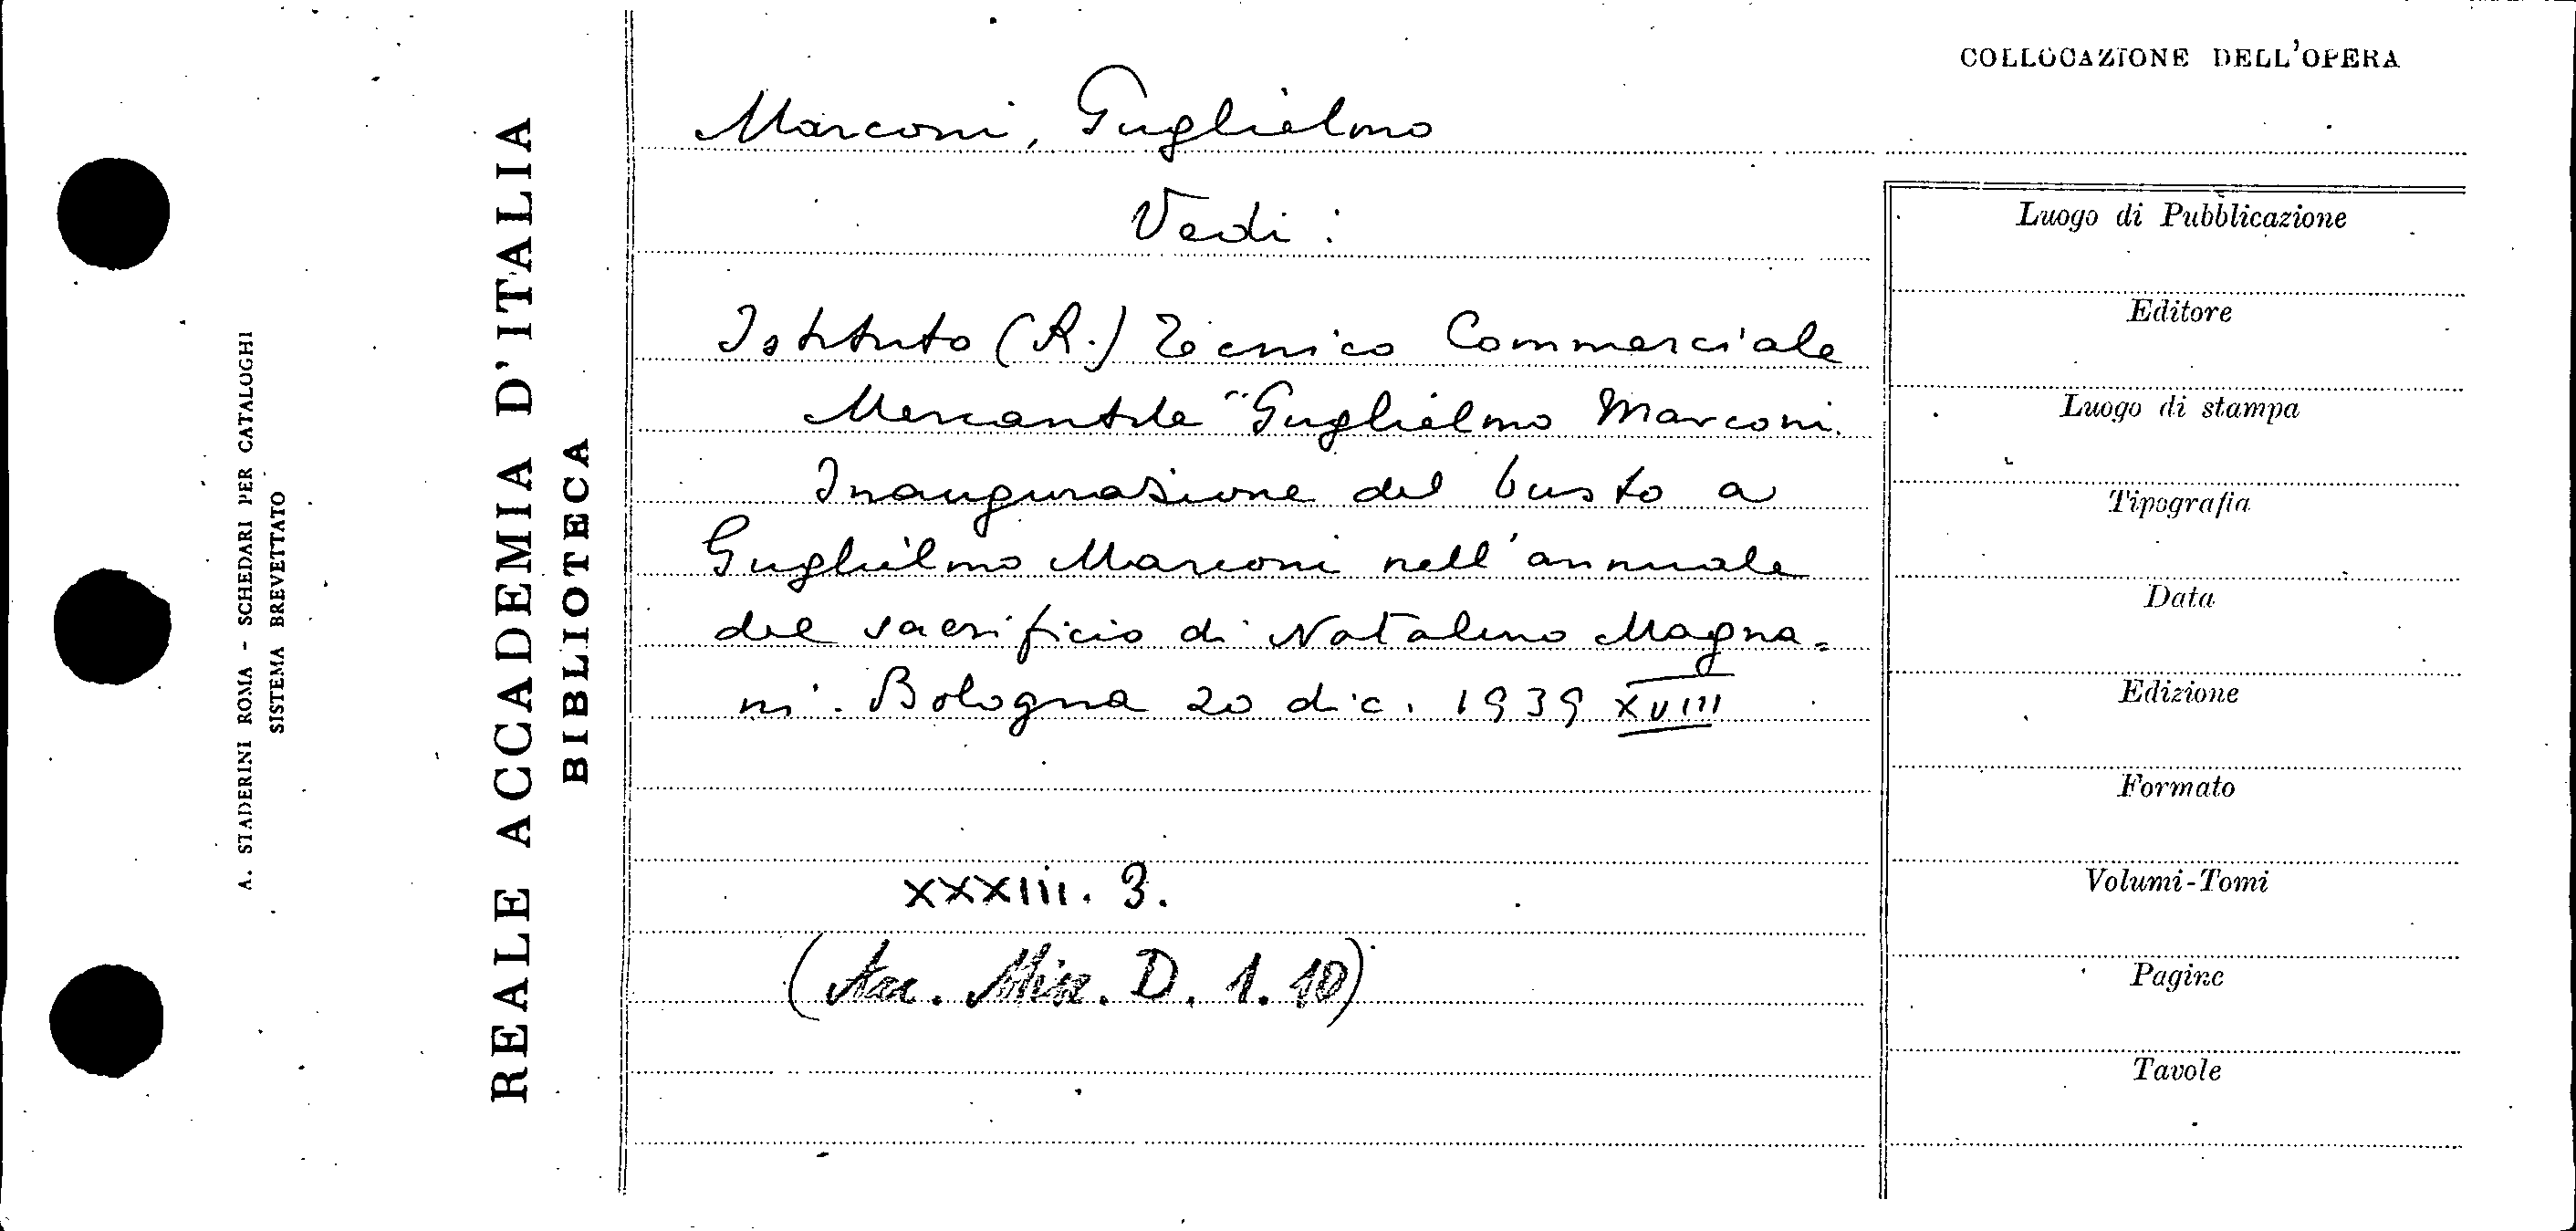 A. STADERINI ROMA - SCHEDARI PER CATALOGHI
SISTEMA BREVETTATO
REALE ACCADEMIA D'ITALIA
BIBLIOTECA
Marconi, Guglielmo
Vedi:
Istituto (R.) Tecnico Commerciale
Mercantile "Guglielmo Marconi.
Inaugurazione del busto a
Guglielmo Marconi nell'annuale
del sacrificio di Natalino Magna=
ni. Bologna 20 dic. 1939 XVIII
XXXIII. 3.
(Acc. Misc. D. 1. 10)
COLLOCAZIONE DELL'OPERA
Luogo di Pubblicazione
Editore
Luogo di stampa
Tipografia
Data
Edizione
Formato
Volumi-Tomi
Pagine
Tavole